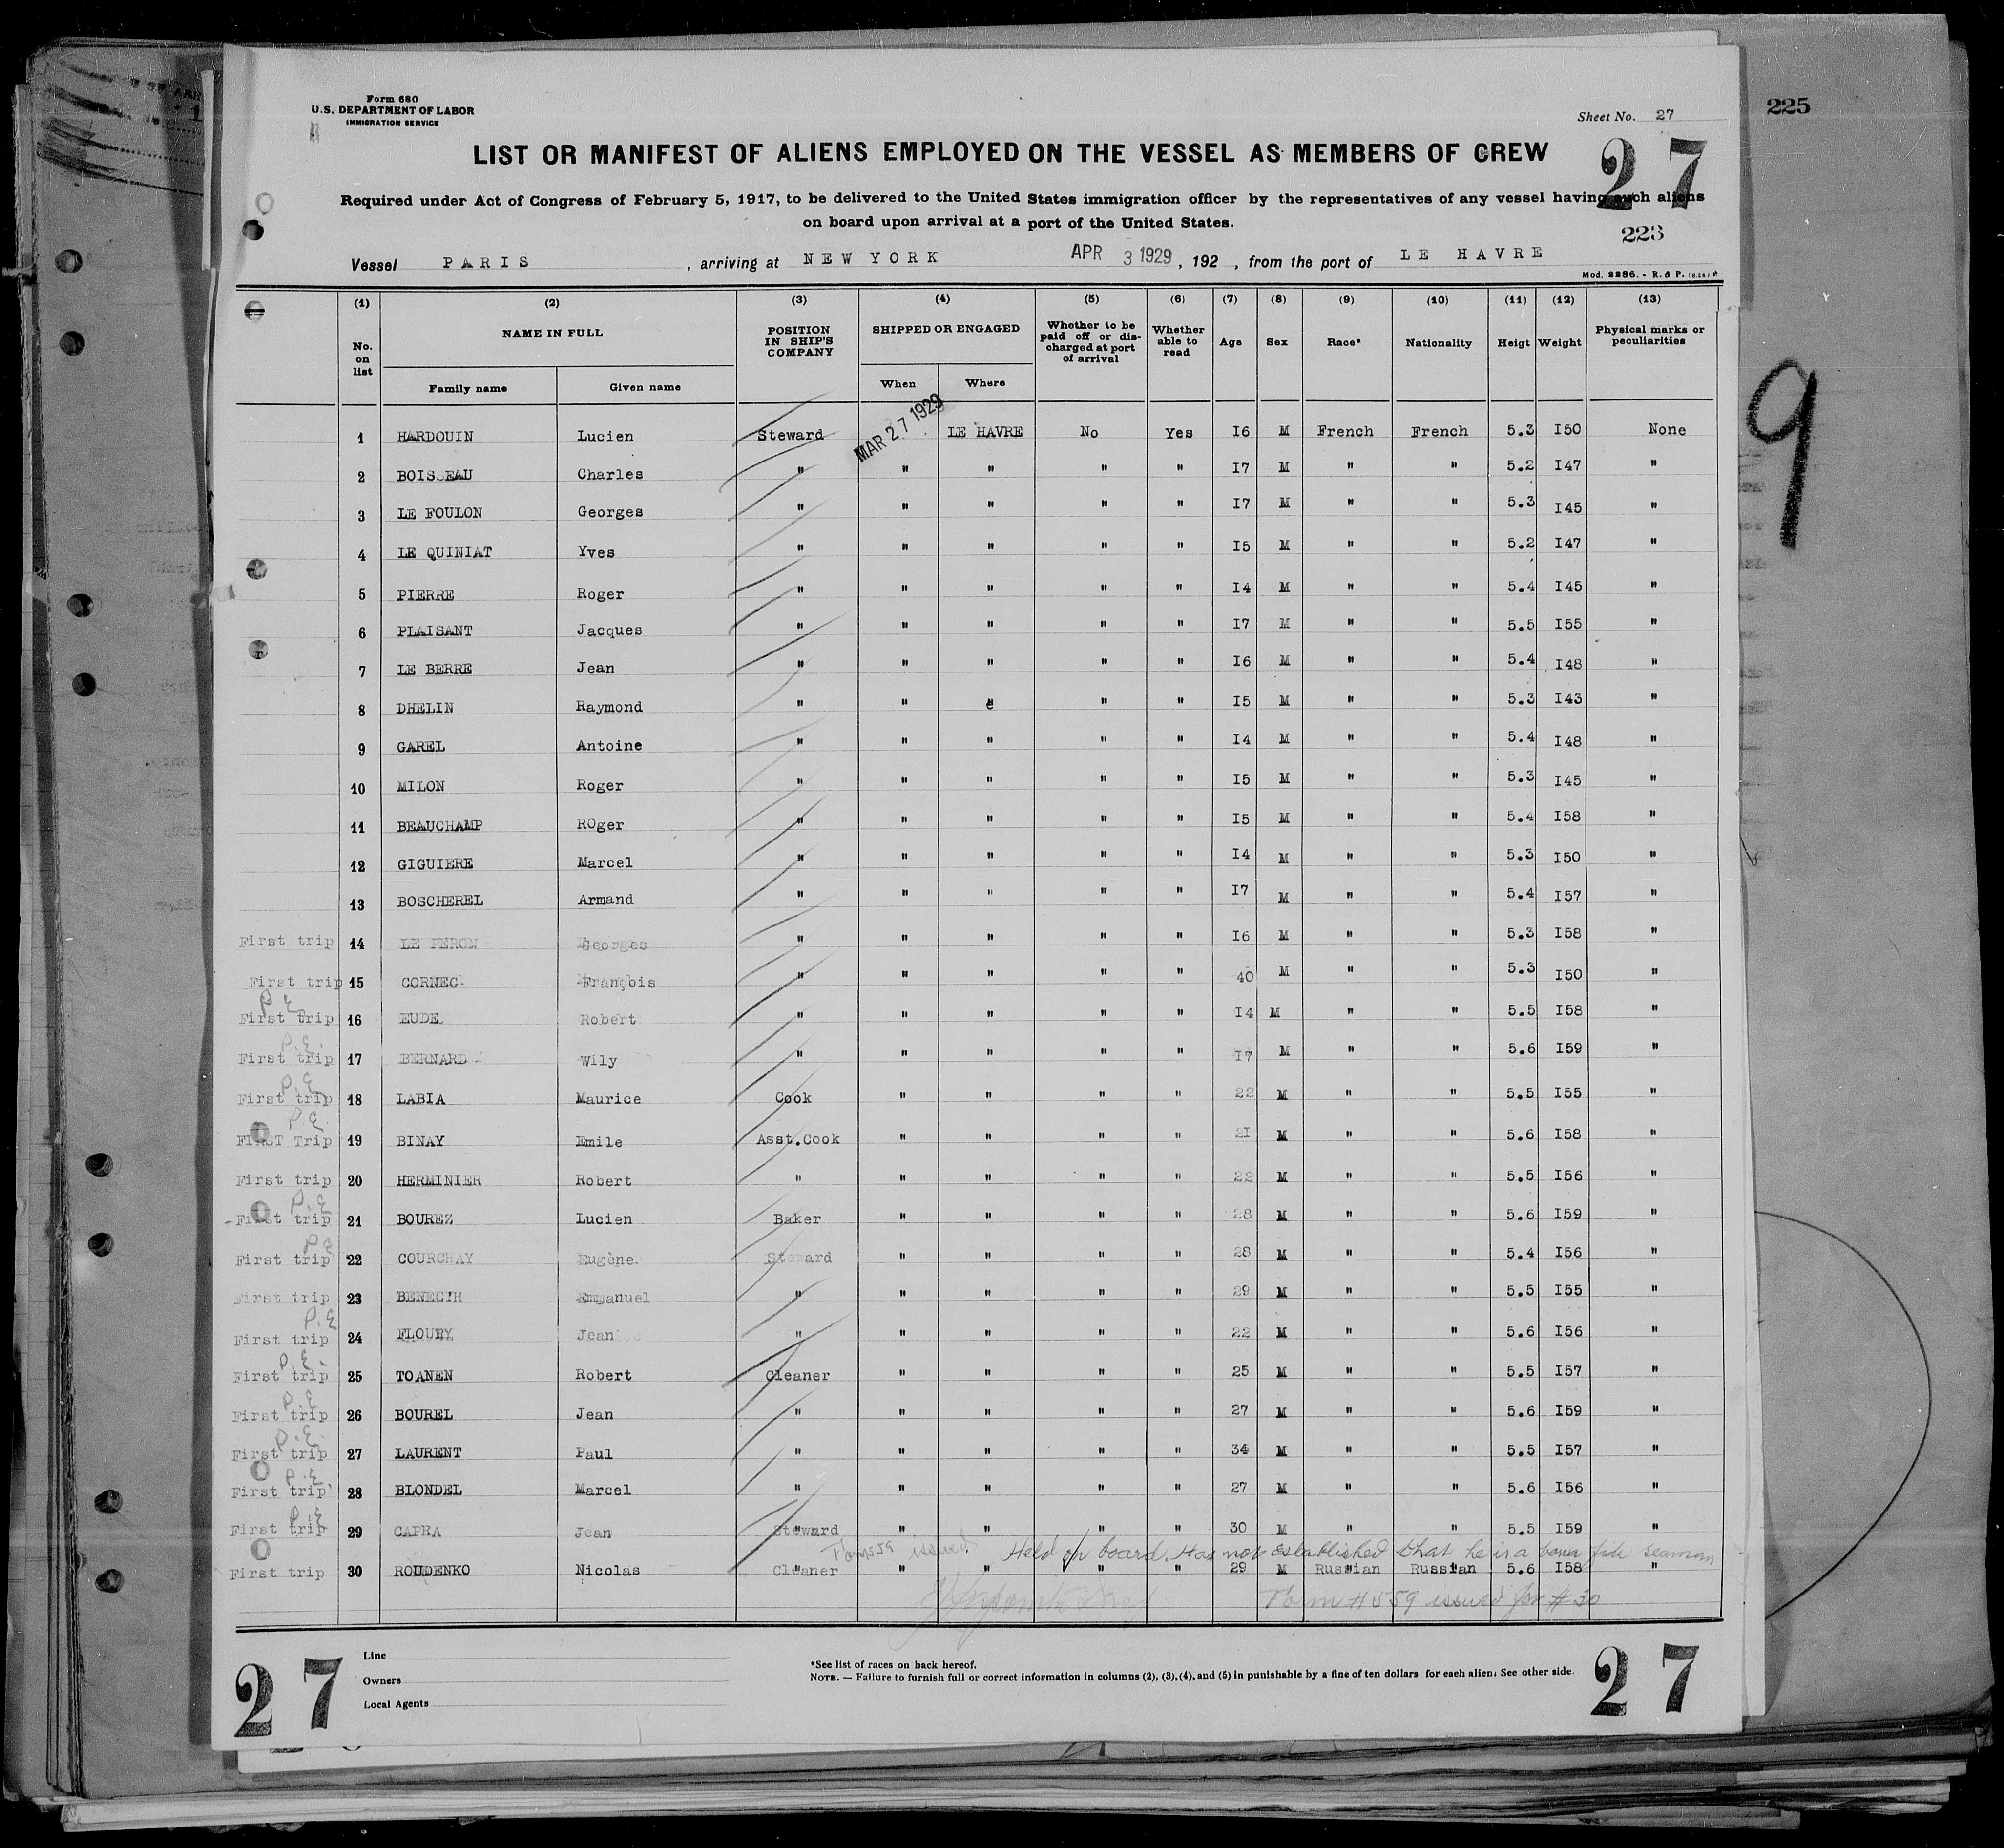 225
Form 680
U.S. DEPARTMENT OF LABOR
IMMIGRATION SERVICE
Sheet No. 27
LIST OR MANIFEST OF ALIENS EMPLOYED ON THE VESSEL AS MEMBERS OF CREW
27
Required under Act of Congress of February 5, 1917, to be delivered to the United States immigration officer by the representatives of any vessel having such aliens
on board upon arrival at a port of the United States.
223
Vessel PARIS, arriving at NEW YORK APR 3 1929, 192 , from the port of LE HAVRE
Mod. 2286. - R. & P.
(1) (2) (3) (4) (5) (6) (7) (8) (9) (10) (11) (12) (13)
No. on list NAME IN FULL POSITION IN SHIP'S COMPANY SHIPPED OR ENGAGED Whether to be paid off or discharged at port of arrival Whether able to read Age Sex Race* Nationality Heigt Weight Physical marks or peculiarities
Family name Given name When Where
9
1 HARDOUIN Lucien Steward MAR 27 1929 LE HAVRE No Yes I6 M French French 5.3 I50 None
2 BOISSEAU Charles " " " " " I7 M " " 5.2 I47 "
3 LE FOULON Georges " " " " " I7 M " " 5.3 I45 "
4 LE QUINIAT Yves " " " " " I5 M " " 5.2 I47 "
5 PIERRE Roger " " " " " I4 M " " 5.4 I45 "
6 PLAISANT Jacques " " " " " I7 M " " 5.5 I55 "
7 LE BERRE Jean " " " " " I6 M " " 5.4 I48 "
8 DHELIN Raymond " " " " I5 M " " 5.3 I43 "
9 GAREL Antoine " " " " " I4 M " " 5.4 I48 "
10 MILON Roger " " " " " I5 M " " 5.3 I45 "
11 BEAUCHAMP ROger " " " " " I5 M " " 5.4 I58 "
12 GIGUIERE Marcel " " " " " I4 M " " 5.3 I50 "
13 BOSCHEREL Armand " " " " " I7 M " " 5.4 I57 "
First trip 14 LE FERON Georges " " " " " I6 M " " 5.3 I58 "
First trip 15 CORNEC François " " " " " 40 M " " 5.3 I50 "
P.E.
First trip 16 EUDE Robert " " " " " I4 M " " 5.5 I58 "
P.E.
First trip 17 BERNARD Wily " " " " " I7 M " " 5.6 I59 "
P.E.
First trip 18 LABIA Maurice Cook " " " " 22 M " " 5.5 I55 "
P.E.
FIRST Trip 19 BINAY Emile Asst.Cook " " " " 21 M " " 5.6 I58 "
First trip 20 HERMINIER Robert " " " " " 22 M " " 5.5 I56 "
P.E.
First trip 21 BOUREZ Lucien Baker " " " " 28 M " " 5.6 I59 "
P.E.
First trip 22 COURCHAY Eugène Steward " " " " 28 M " " 5.4 I56 "
First trip 23 Emmanuel " " " " " 29 M " " 5.5 I55 "
P.E.
First trip 24 FLOURY Jean " " " " " 22 M " " 5.6 I56 "
P.E.
First trip 25 TOANEN Robert Cleaner " " " " 25 M " " 5.5 I57 "
P.E.
First trip 26 BOUREL Jean " " " " " 27 M " " 5.6 I59 "
P.E.
First trip 27 LAURENT Paul " " " " " 34 M " " 5.5 I57 "
P.E.
First trip 28 BLONDEL Marcel " " " " " 27 M " " 5.6 I56 "
P.E.
First trip 29 CAPRA Jean Steward " " " " 30 M " " 5.5 I59 "
Form 559 issued Held on board. Has not established that he is a bona fide seaman
First trip 30 ROUDENKO Nicolas Cleaner " " " " 29 M Russian Russian 5.6 I58 "
Form #559 issued for #30
Line
Owners
Local Agents
*See list of races on back hereof.
NOTE. — Failure to furnish full or correct information in columns (2), (3), (4), and (5) in punishable by a fine of ten dollars for each alien. See other side.
27
27